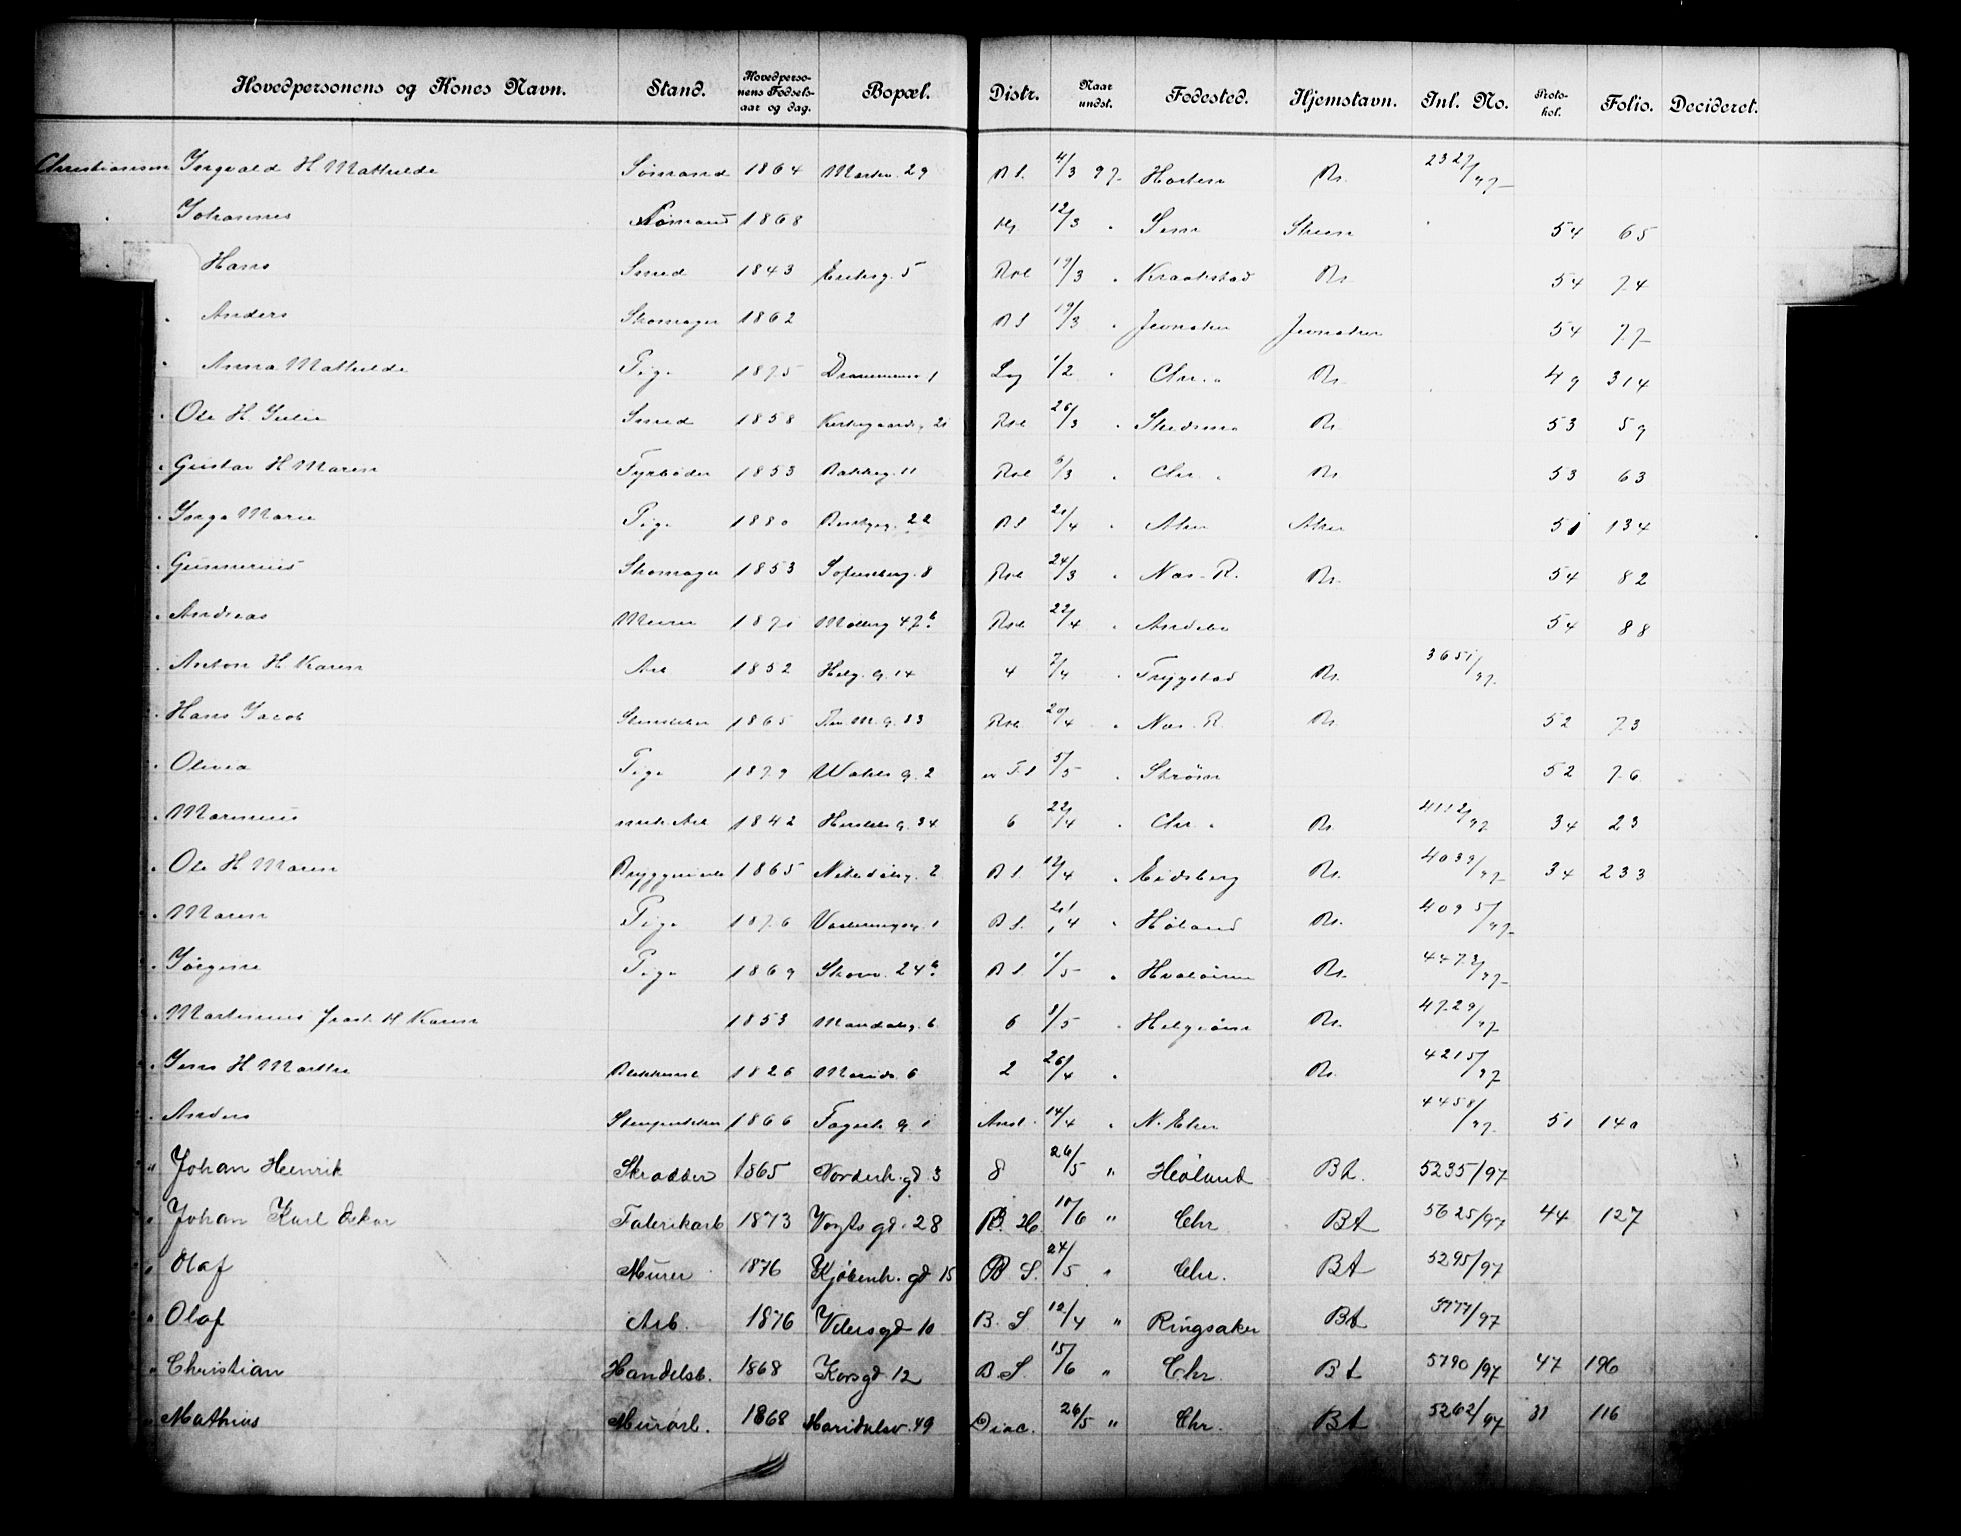 Hovedpersonens og Kones Navn. Stand. Hovedperso-nens Fødsels-aar og dag. Bopæl. Distr. Naar undst. Fødested. Hjemstavn. Inl. No. Proto-kol. Folio. Decideret.
Christiansen Ingvald H Mathilde Sømand 1864 Markv. 29 B S. 4/3 97 Horten Bt. 2327/97
Johannes Sømand 1868 12/3 " Sem Skien 54 65
Hans Smed 1843 Eriksg. 5 Rod 19/3 " Kraakstad Bt 54 74
" Anders Skomager 1862 B S 19/3 " Jevnaker Jevnaker 54 77
" Anna Mathilde Pige 1875 1 1/2 " Chr. Bt. 49 314
" Ole H. Julie Smed 1858 Kirkegaardsg. 21 Rod 26/3 " Skedsmo Bt 53 59
" Gustav H Maren Fyrbøder 1853 Bakkeg. 11 Rod 6/3 " Chr. Bt 53 63
" Inga Marie Pige 1880 22 B S 21/4 " Aker Aker 51 134
" Gunnerius Skomager 1853 Sofienberg. 8 Rod 24/3 " Næs. R. Bt. 54 82
" Andreas Murer 1871 Møllerg 47 b. Rod 22/4 " Andebu 54 88
" Anton H. Karen Arb 1852 Helg. g. 14 4 7/4 " Trygstad Bt. 3651/97
" Hans Jacob Stenhukker 1865 Thv. M. g. 33 Rod 20/4 " Næs. R. Bt 52 73
" Olivia Pige 1879 g. 2 5/5 " Strøm 52 76
" Marinius 1842 g. 34 6 22/4 " Chr. Bt. 4112/97 34 23
" Ole H Maren Bryggeriarb 1865 Nitedalsg. 2 B S. 12/4 " Eidsberg Bt. 4039/97 34 233
" Maren Pige 1876 1 B S. 21/4 " Høland Bt. 4095/97
" Jørgine Pige 1869 Skovv. 24 b. B S. 1/5 " Hvaløerne Bt. 4473/97
" Martinius frask. H Karen 1853 Mandalsg. 6 6 3/5 " Helgøen Bt. 4729/97
" Jens H Marthe 1826 Marids. 6 2 26/4 " Bt. 4215/97
" Anders 1866 g. 1 14/4 " N. Eker 4458/97 51 140
" Johan Henrik Skrædder 1865 Norderh. gd 3 8 26/5 " Høland Bt. 5235/97
" Johan Karl Oskar Fabrikarb 1873 Vogts gd. 28 R. H. 10/6 " Chr. Bt 5625/97 44 127
" Olaf Murer 1876 Kjøbenh. gd 15 B S. 24/5 " Chr. Bt 5295/97
" Olaf Arb. 1876 gd 10 B. S. 12/4 " Ringsaker Bt 3777/97
" Christian Handelsb. 1868 Korsgd 12 B S. 15/6 " Chr. Bt 5790/97 47 196
" Mathias Murarb. 1868 Maridalsv. 49 Diac. 26/5 " Chr. Bt 5262/97 31 116